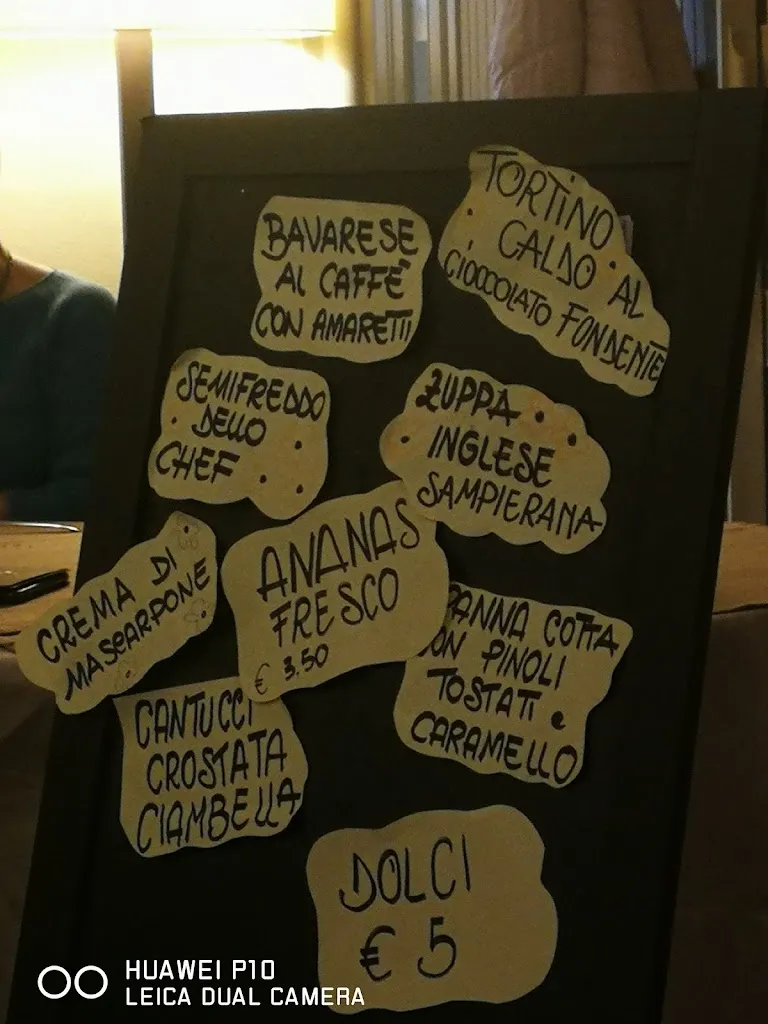 TORTINO
CALDO AL
CIOCCOLATO FONDENTE
BAVARESE
AL CAFFÈ
CON AMARETTI
SEMIFREDDO
DELLO
CHEF
ZUPPA
INGLESE
SAMPIERANA
CREMA DI
MASCARPONE
ANANAS
FRESCO
€ 3.50
PANNA COTTA
CON PINOLI
TOSTATI e
CARAMELLO
CANTUCCI
CROSTATA
CIAMBELLA
DOLCI
€ 5
HUAWEI P10
LEICA DUAL CAMERA